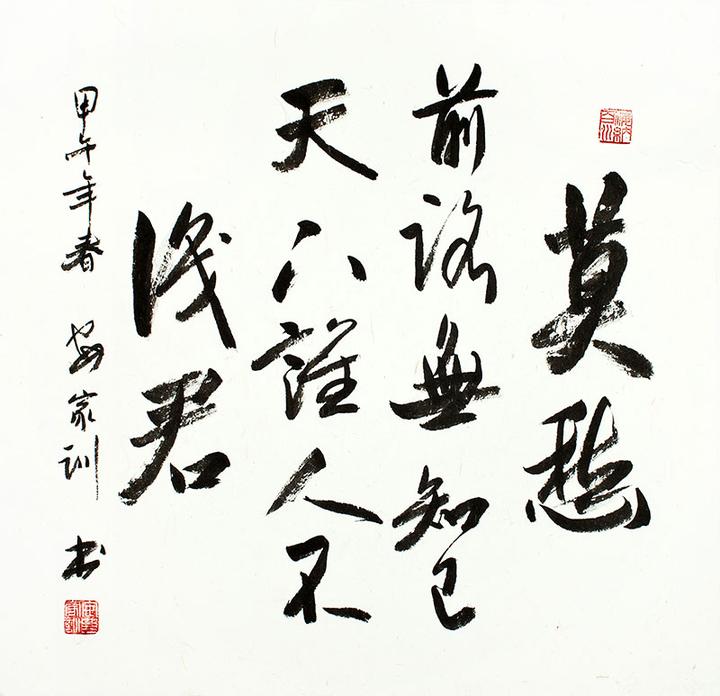 莫愁
前路無知己
天下誰人不
識君
甲午年春 安家训 书